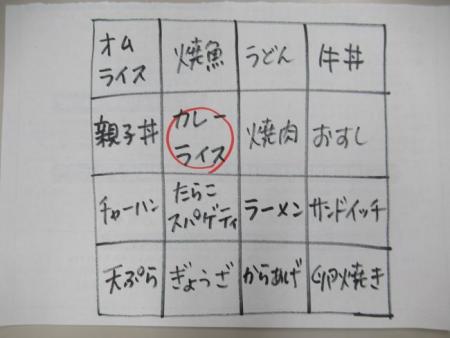 オム
ライス
焼魚
うどん
牛丼
親子丼
カレー
ライス
焼肉
おすし
チャーハン
たらこ
スパゲティ
ラーメン
サンドイッチ
天ぷら
ぎょうざ
からあげ
卵焼き